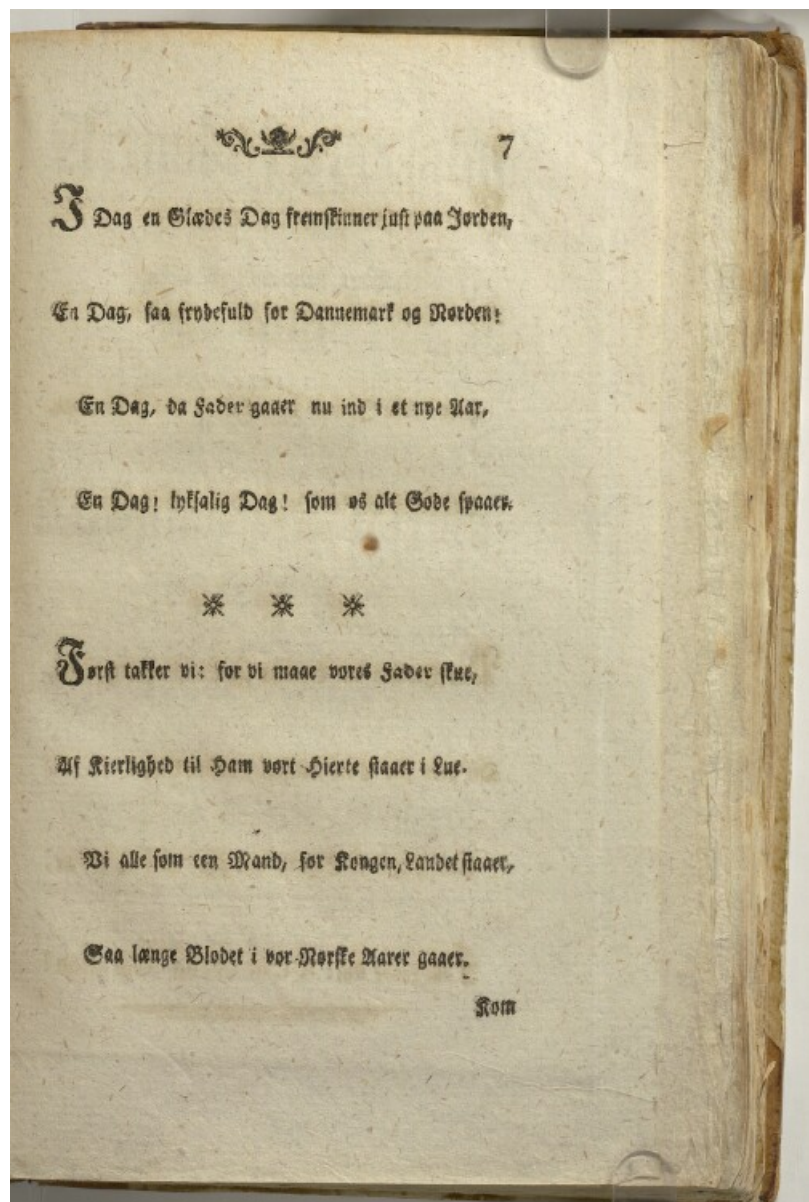 7
I Dag en Glædes Dag fremskinner just paa Jorden,
En Dag, saa frydefuld for Dannemark og Norden:
En Dag, da Fader gaaer nu ind i et nye Aar,
En Dag! lyksalig Dag! som os alt Gode spaaer.
Først takker vi: for vi maae vores Fader skue,
Af Kierlighed til Ham vort Hierte staaer i Lue.
Vi alle som een Mand, for Kongen, Landet staaer,
Saa længe Blodet i vor Norske Aarer gaaer.
Kom